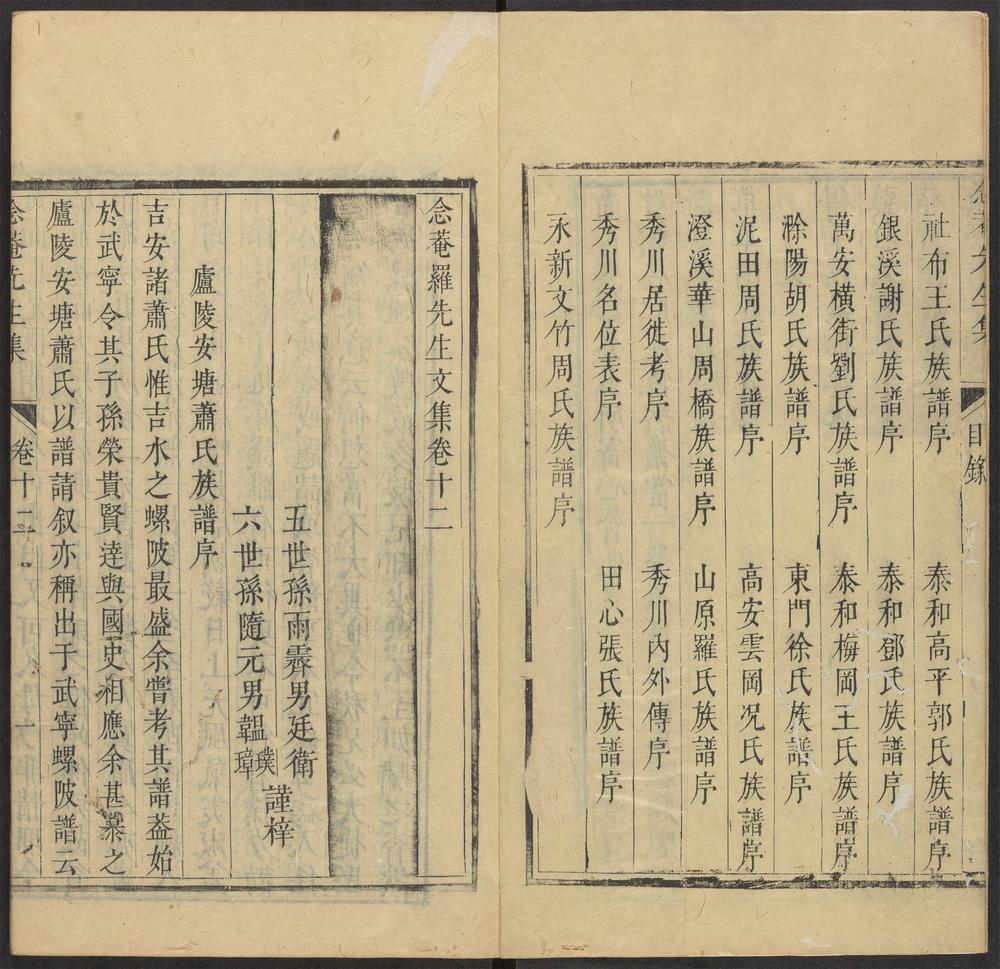 念菴先生集
目錄
社布王氏族譜序 泰和高平郭氏族譜序
銀溪謝氏族譜序 泰和鄧氏族譜序
萬安橫街劉氏族譜序 泰和梅岡王氏族譜序
滁陽胡氏族譜序 東門徐氏族譜序
泥田周氏族譜序 高安雲岡况氏族譜序
澄溪華山周橋族譜序 山原羅氏族譜序
秀川居徙考序 秀川內外傳序
秀川名位表序 田心張氏族譜序
永新文竹周氏族譜序
念菴羅先生文集卷十二
五世孫雨霽男廷衛
六世孫隨元男韞璞璋
謹梓
廬陵安塘蕭氏族譜序
吉安諸蕭氏惟吉水之螺陂最盛余嘗考其譜葢始
於武寧令其子孫榮貴賢達與國史相應余甚慕之
廬陵安塘蕭氏以譜請叙亦稱出于武寧螺陂譜云
念菴先生集
卷十二
一